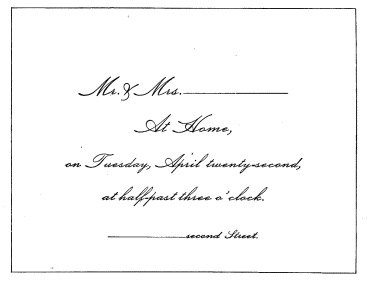 Mr. & Mrs.
At Home,
on Tuesday, April twenty-second,
at half-past three o'clock.
second Street.